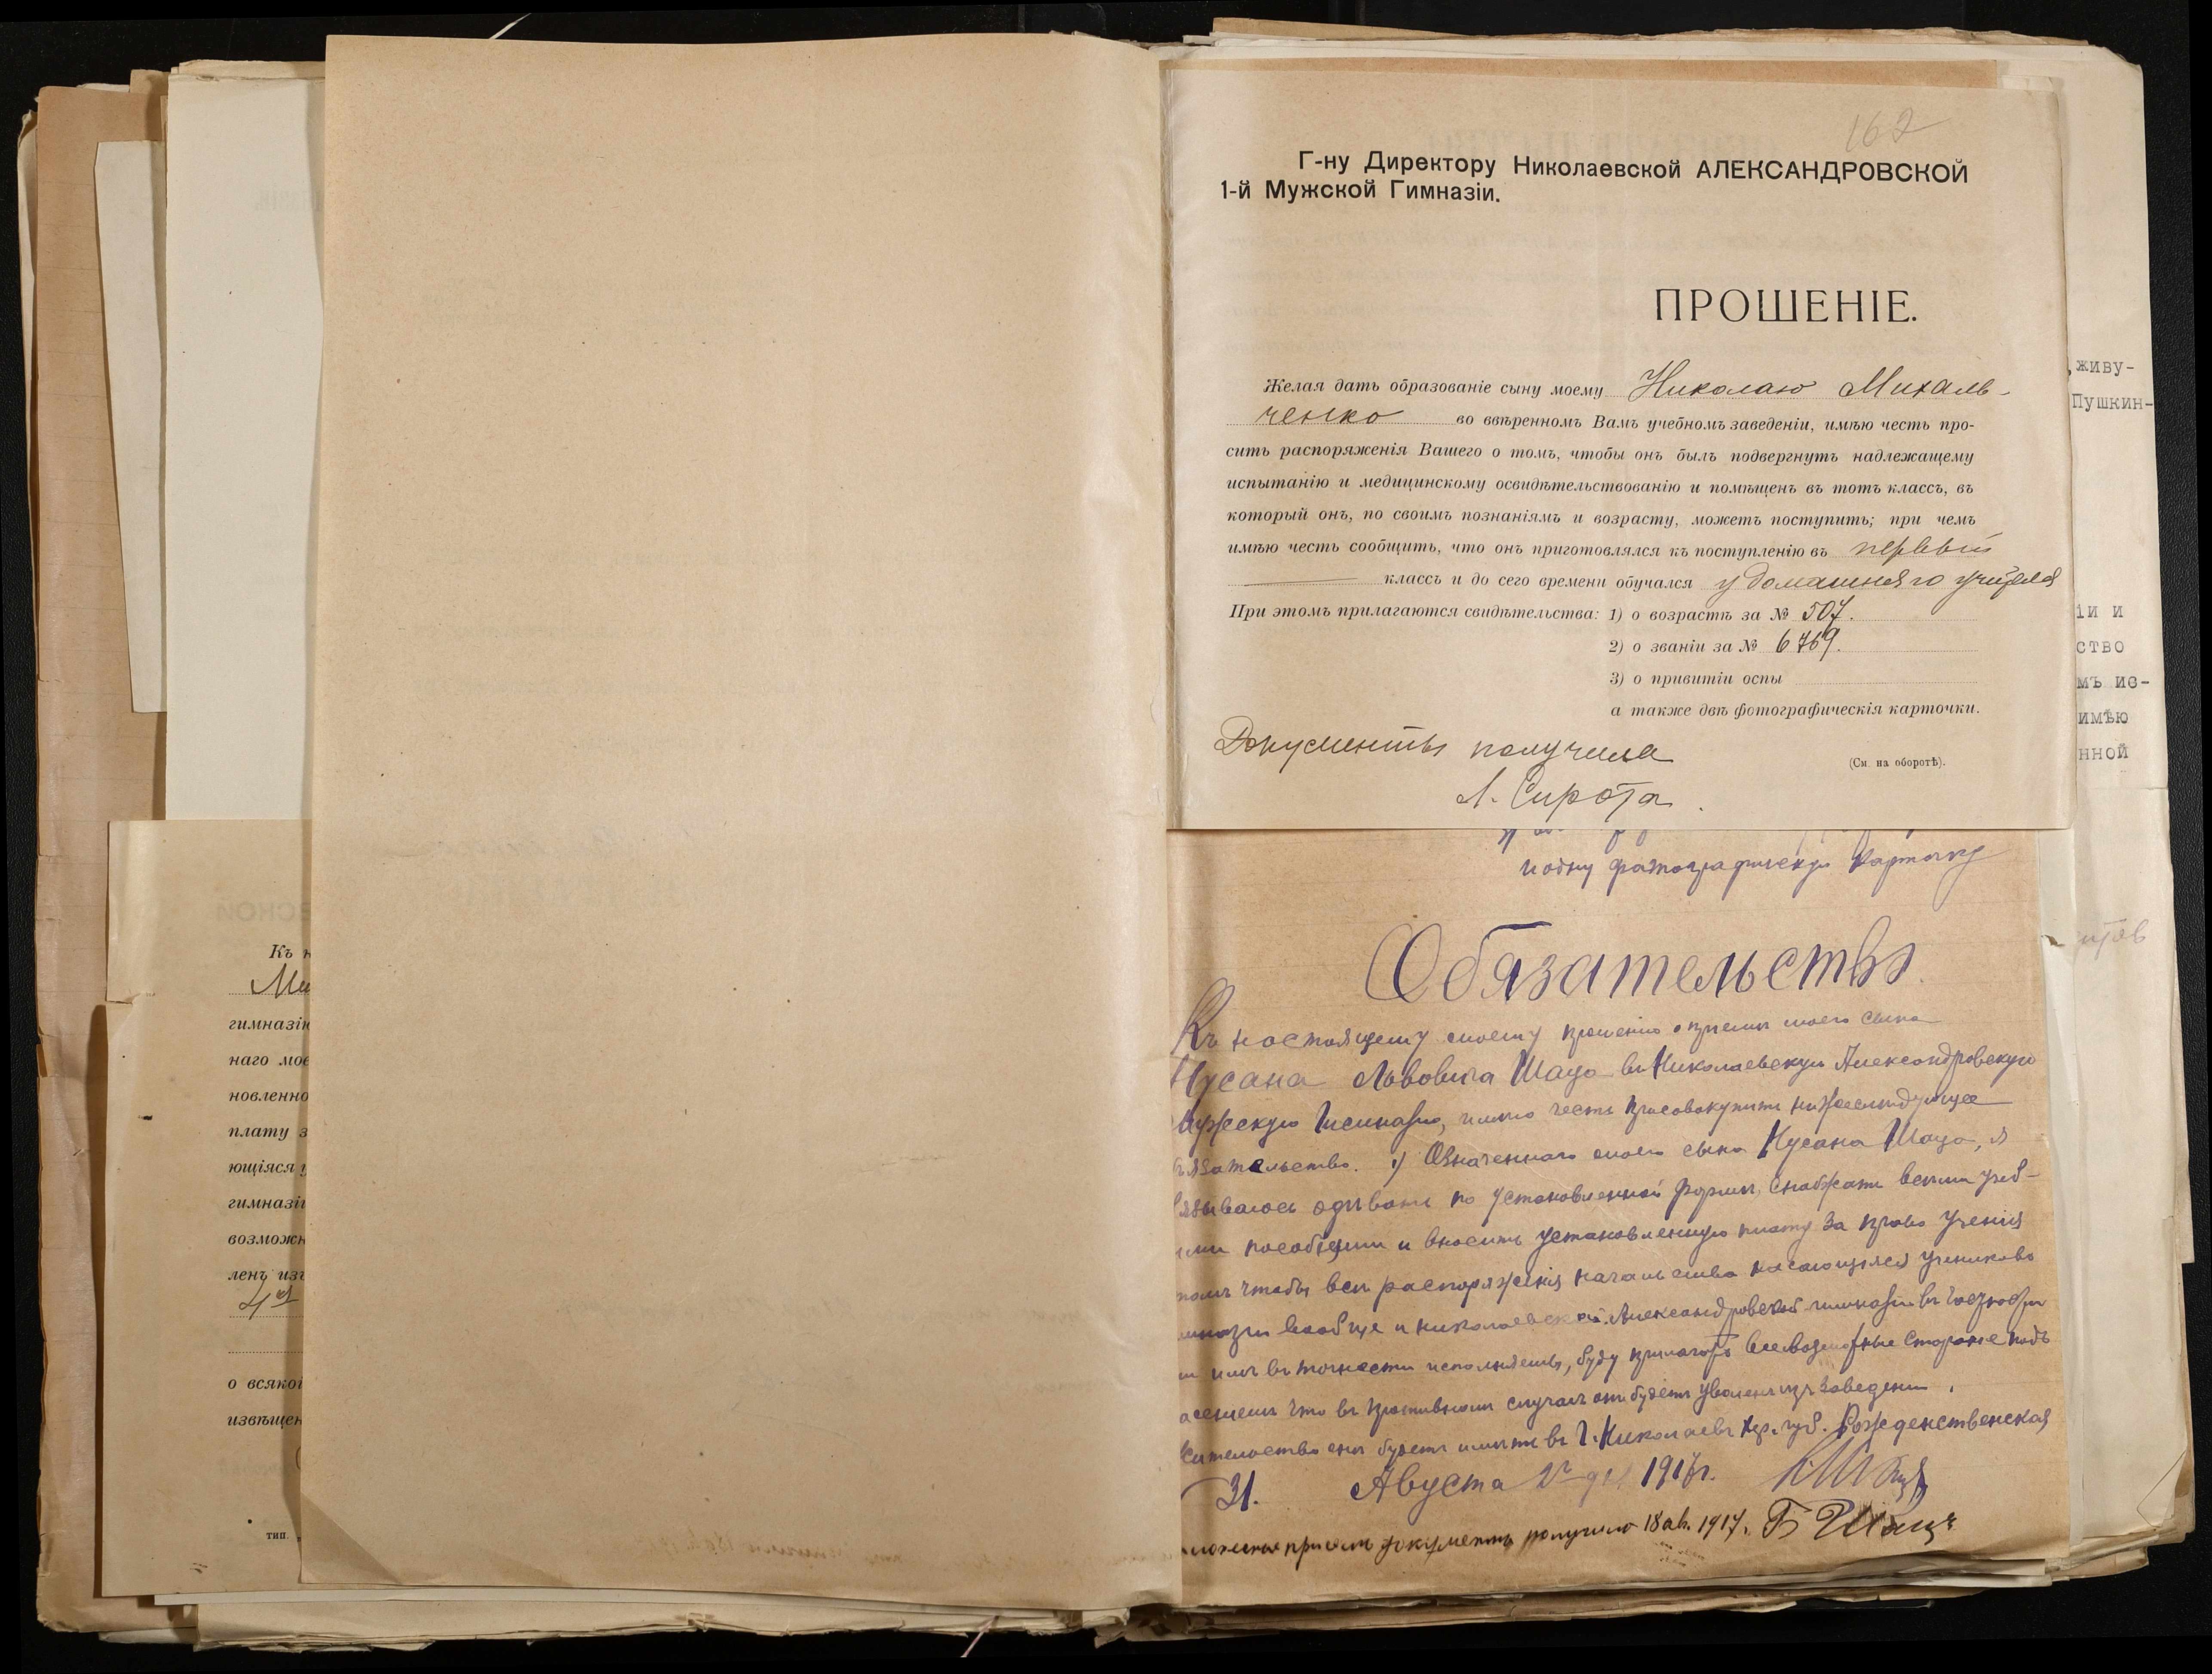 Къ н
Ми
гимназію
наго мое
новленно
плату з
ющіяся у
гимназіи
возможн
ленъ изъ
о всякой
извѣщен
тип.
162
Г-ну Директору Николаевской АЛЕКСАНДРОВСКОЙ
1-й Мужской Гимназіи.
ПРОШЕНІЕ.
Желая дать образованіе сыну моему Николаю Михаль-
ченко во ввѣренномъ Вамъ учебномъ заведеніи, имѣю честь про-
сить распоряженія Вашего о томъ, чтобы онъ былъ подвергнутъ надлежащему
испытанію и медицинскому освидѣтельствованію и помѣщенъ въ тотъ классъ, въ
который онъ, по своимъ познаніямъ и возрасту, можетъ поступить; при чемъ
имѣю честь сообщить, что онъ приготовлялся къ поступленію въ первый
классъ и до сего времени обучался у домашняго учителя
При этомъ прилагаются свидѣтельства: 1) о возрастѣ за № 507.
2) о званіи за № 6769.
3) о привитіи оспы
а также двѣ фотографическія карточки.
Документы получила
(См. на оборотѣ).
Л. Сирота.
и одну фотографическую карточку
Обязательство.
Къ настоящему моему прошенію о пріемѣ моего сына
Нусана Львовича Шаца въ Николаевскую Александровскую
Мужскую Гимназію, имѣю честь присовокупить нижеслѣдующее
обязательство. 1) Означеннаго моего сына Нусана Шаца, я
обязываюсь одѣвать по установленной формѣ, снабжать всѣми учеб-
ными пособіями и вносить установленную плату за право ученія
томъ чтобы всѣ распоряженія начальства касающіяся учениковъ
гимназіи вообще и Николаевской Александровской гимназіи въ
имъ въ точности исполняемы, буду прилагать всевозможные старанія подъ
опасеніемъ что въ противномъ случаѣ онъ будетъ уволенъ изъ заведенія.
жительство онъ будетъ имѣть въ г. Николаевѣ Хер. губ. Рождественская
31. Августа 2го дня 1917г.
документы получилъ 18 ав. 1917. Б Шацъ
живу-
Пушкин-
іи и
ство
мъ ис-
имѣю
нной